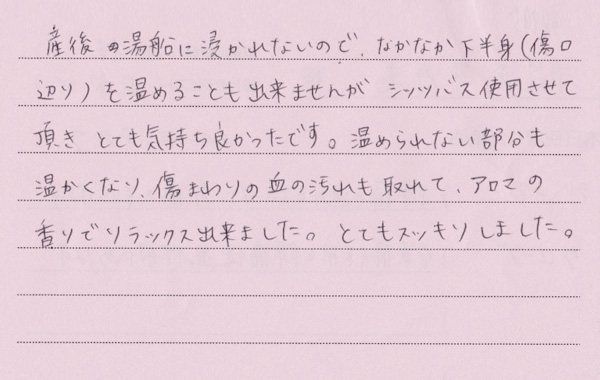 産後の湯船に浸かれないので、なかなか下半身(傷口
辺り)を温めることも出来ませんが シッツバス使用させて
頂き とても気持ち良かったです。温められない部分も
温かくなり、傷まわりの血の汚れも取れて、アロマの
香りでリラックス出来ました。とてもスッキリしました。